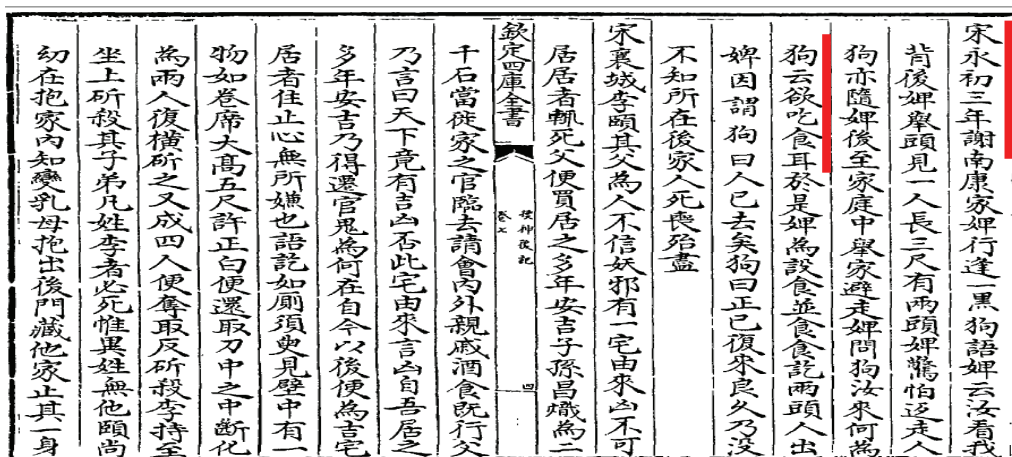 宋永初三年謝南康家婢行逢一黑狗語婢云汝看我
背後婢舉頭見一人長三尺有兩頭婢驚怕返走人
狗亦隨婢後至家庭中舉家避走婢問狗汝來何為
狗云欲吃食耳於是婢為設食並食食訖兩頭人出
婢因謂狗曰人已去矣狗曰正已復來良久乃沒
不知所在後家人死喪殆盡
宋襄城李頤其父為人不信妖邪有一宅由來凶不可
居居者輒死父便買居之多年安吉子孫昌熾為二
欽定四庫全書
搜神後記
卷七
四
千石當徙家之官臨去請會內外親戚酒食既行父
乃言曰天下竟有吉凶否此宅由來言凶自吾居之
多年安吉乃得還官鬼為何在自今以後便為吉宅
居者住止心無所嫌也語訖如廁須臾見壁中有一
物如卷席大高五尺許正白便還取刀中之中斷化
為兩人復橫斫之又成四人便奪取反斫殺李持至
坐上斫殺其子弟凡姓李者必死惟異姓無他頤尚
幼在抱家內知變乳母抱出後門藏他家止其一身